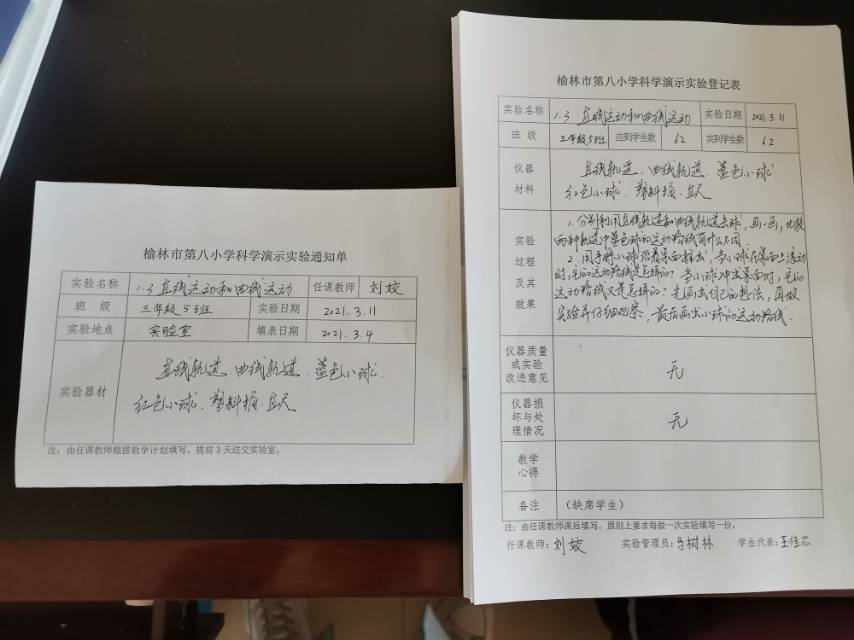 榆林市第八小学科学演示实验通知单
实验名称 1.3 直线运动和曲线运动 任课教师 刘姣
班 级 三年级 5班 实验日期 2021.3.11
实验地点 实验室 填表日期 2021.3.4
实验器材 直线轨道、曲线轨道、蓝色小球、
红色小球、塑料瓶、直尺
注:由任课教师根据教学计划填写,提前3天送交实验室。
榆林市第八小学科学演示实验登记表
实验名称 1.3 直线运动和曲线运动 实验日期 2021.3.11
班 级 三年级5班 应到学生数 62 实到学生数 62
仪器材料 直线轨道、曲线轨道、蓝色小球、
红色小球、塑料瓶、直尺
实验过程及其效果
1.分别利用直线轨道和曲线轨道击球,画一画,比较
两种轨道中蓝色球的运动路线有什么不同.
2.用手将小球沿着桌面推出,当小球在桌面上滚动
时,它的运动路线是怎样的?当小球冲出桌面时,它的
运动路线又是怎样的?先画出自己的想法,再做
实验并仔细观察,最后画出小球的运动路线.
仪器质量或实验改进意见 无
仪器损坏与处理情况 无
教学心得
备注 (缺席学生)
注:由任课教师课后填写,原则上要求每做一次实验填写一份。
任课教师:刘姣 实验管理员:马树林 学生代表:王佳芯